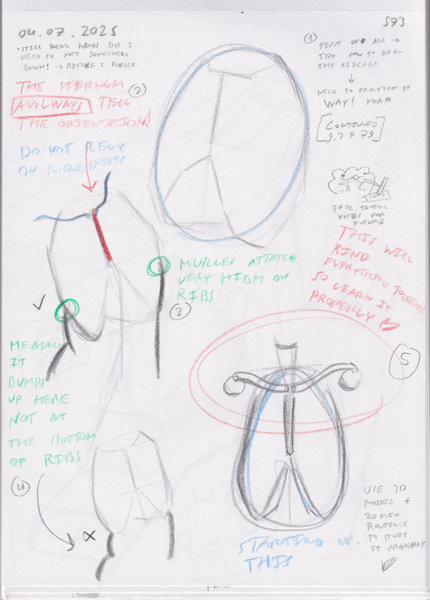 04.07.2025
573
• STILL DRAW HANDS BUT I
NEED TO PUT SOMETHING
DOWN! → BEFORE I FORGET.
①
FIRST OF ALL →
HOW TO DRAW
THE RIBCAGE
NEED TO PRACTICE IT
WAY! MORE
[CONTINUED
P 79]
②
THE STERNUM
ALWAYS TELL
THE ORIENTATION!
DO NOT RELY
ON SHOULDERS
FROG TAKING
NOTES FOR
FUTURE
THIS WILL
BIND
EVERYTHING TOGETHER
SO LEARN IT
PROPERLY
MUSCLES ATTATCH
VERY HIGH ON
RIBS
③
MEANING
IT
BUMPS
UP HERE
NOT AT
THE BOTTOM
OF RIBS
④
X
⑤
STARTING
THIS
USE 3D
MODEL +
20 MIN
ROUTINE
TO STUDY
IT PROPERLY